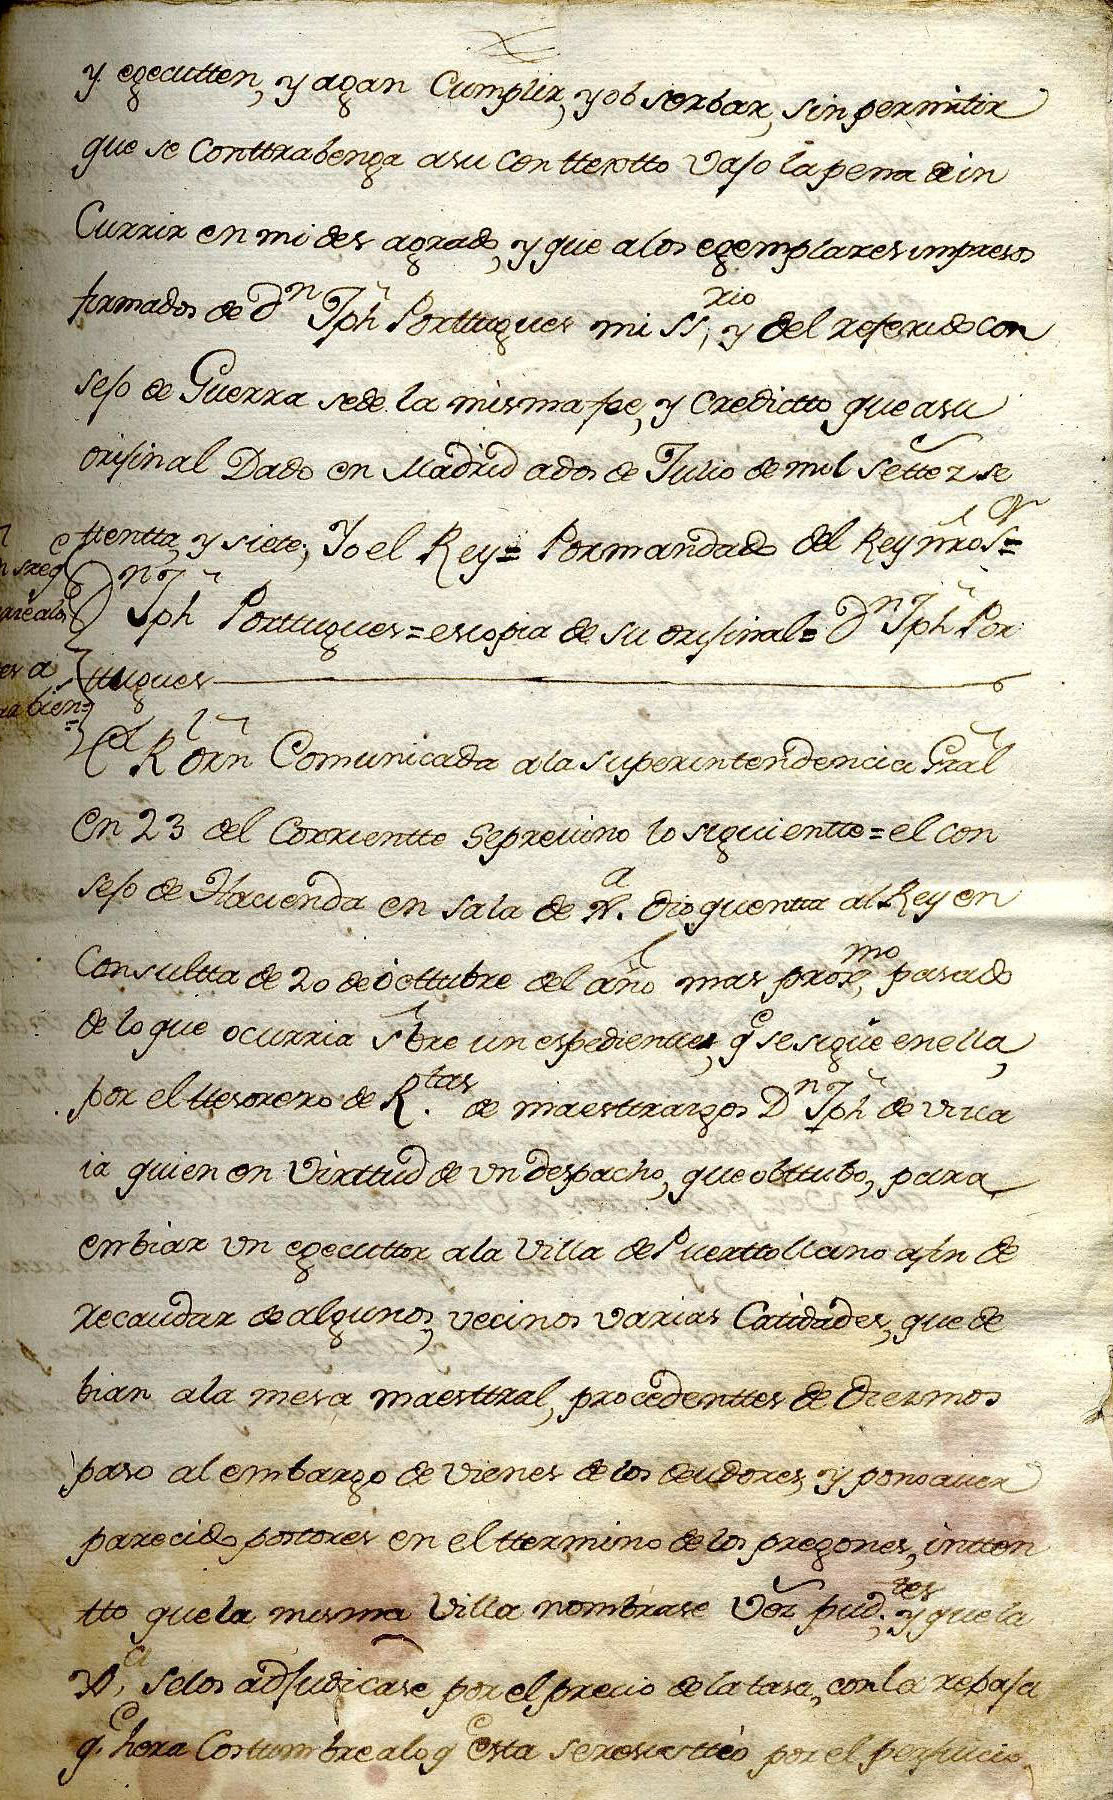 y egecutten, y agan Cumplir, y obserbar, sin permitir
que se Conttrabenga asu conttextto vajo la pena de in
Currir en mi des agrado, y que alos egemplares impresos
firmados de Dn Jph Porttugues mi SSrio, y del referido con
sejo de Guerra sede la misma fee, y creditto que asu
orijinal Dado en Madrid ados de Julio de mil settez se
ttentta, y siete, Yo el Rey = Por mandado del Rey nro Sr =
Dn Jph Porttugues = es copia de su orijinal = Dn Jph Por
ttugues
es a
bien =
El R Orn Comunicada ala superintendencia Gral
en 23 del Corrientte se previno lo siguientte = el con
sejo de Hacienda en sala de Xa. dio quentta al Rey en
Consultta de 20 de octtubre del año mas proxmo, pasado
de lo que ocurria sbre un espedientte, qe se sigue en ella,
por el ttesorero de R.tas de maesttrazgos Dn Jph de Virca
ia quien en Virttud de un despacho, que obttubo, para
embiar un egecuttor ala Villa de Puerttollano afin de
recaudar de algunos, vecinos varias Catidades, que de
bian ala mesa maesttral, procedenttes de Diezmos
paso al embargo de vienes de los deudores, y por no aver
parecido posttores en el ttermino de los pregones, intten
tto que la misma Villa nombrase Vez pud.tes, y que la
Xa, se los adjudicase por el precio de la tasa, con la rebaja
qe hera Costtumbre alo qe esta se resisttió por el perjuicio